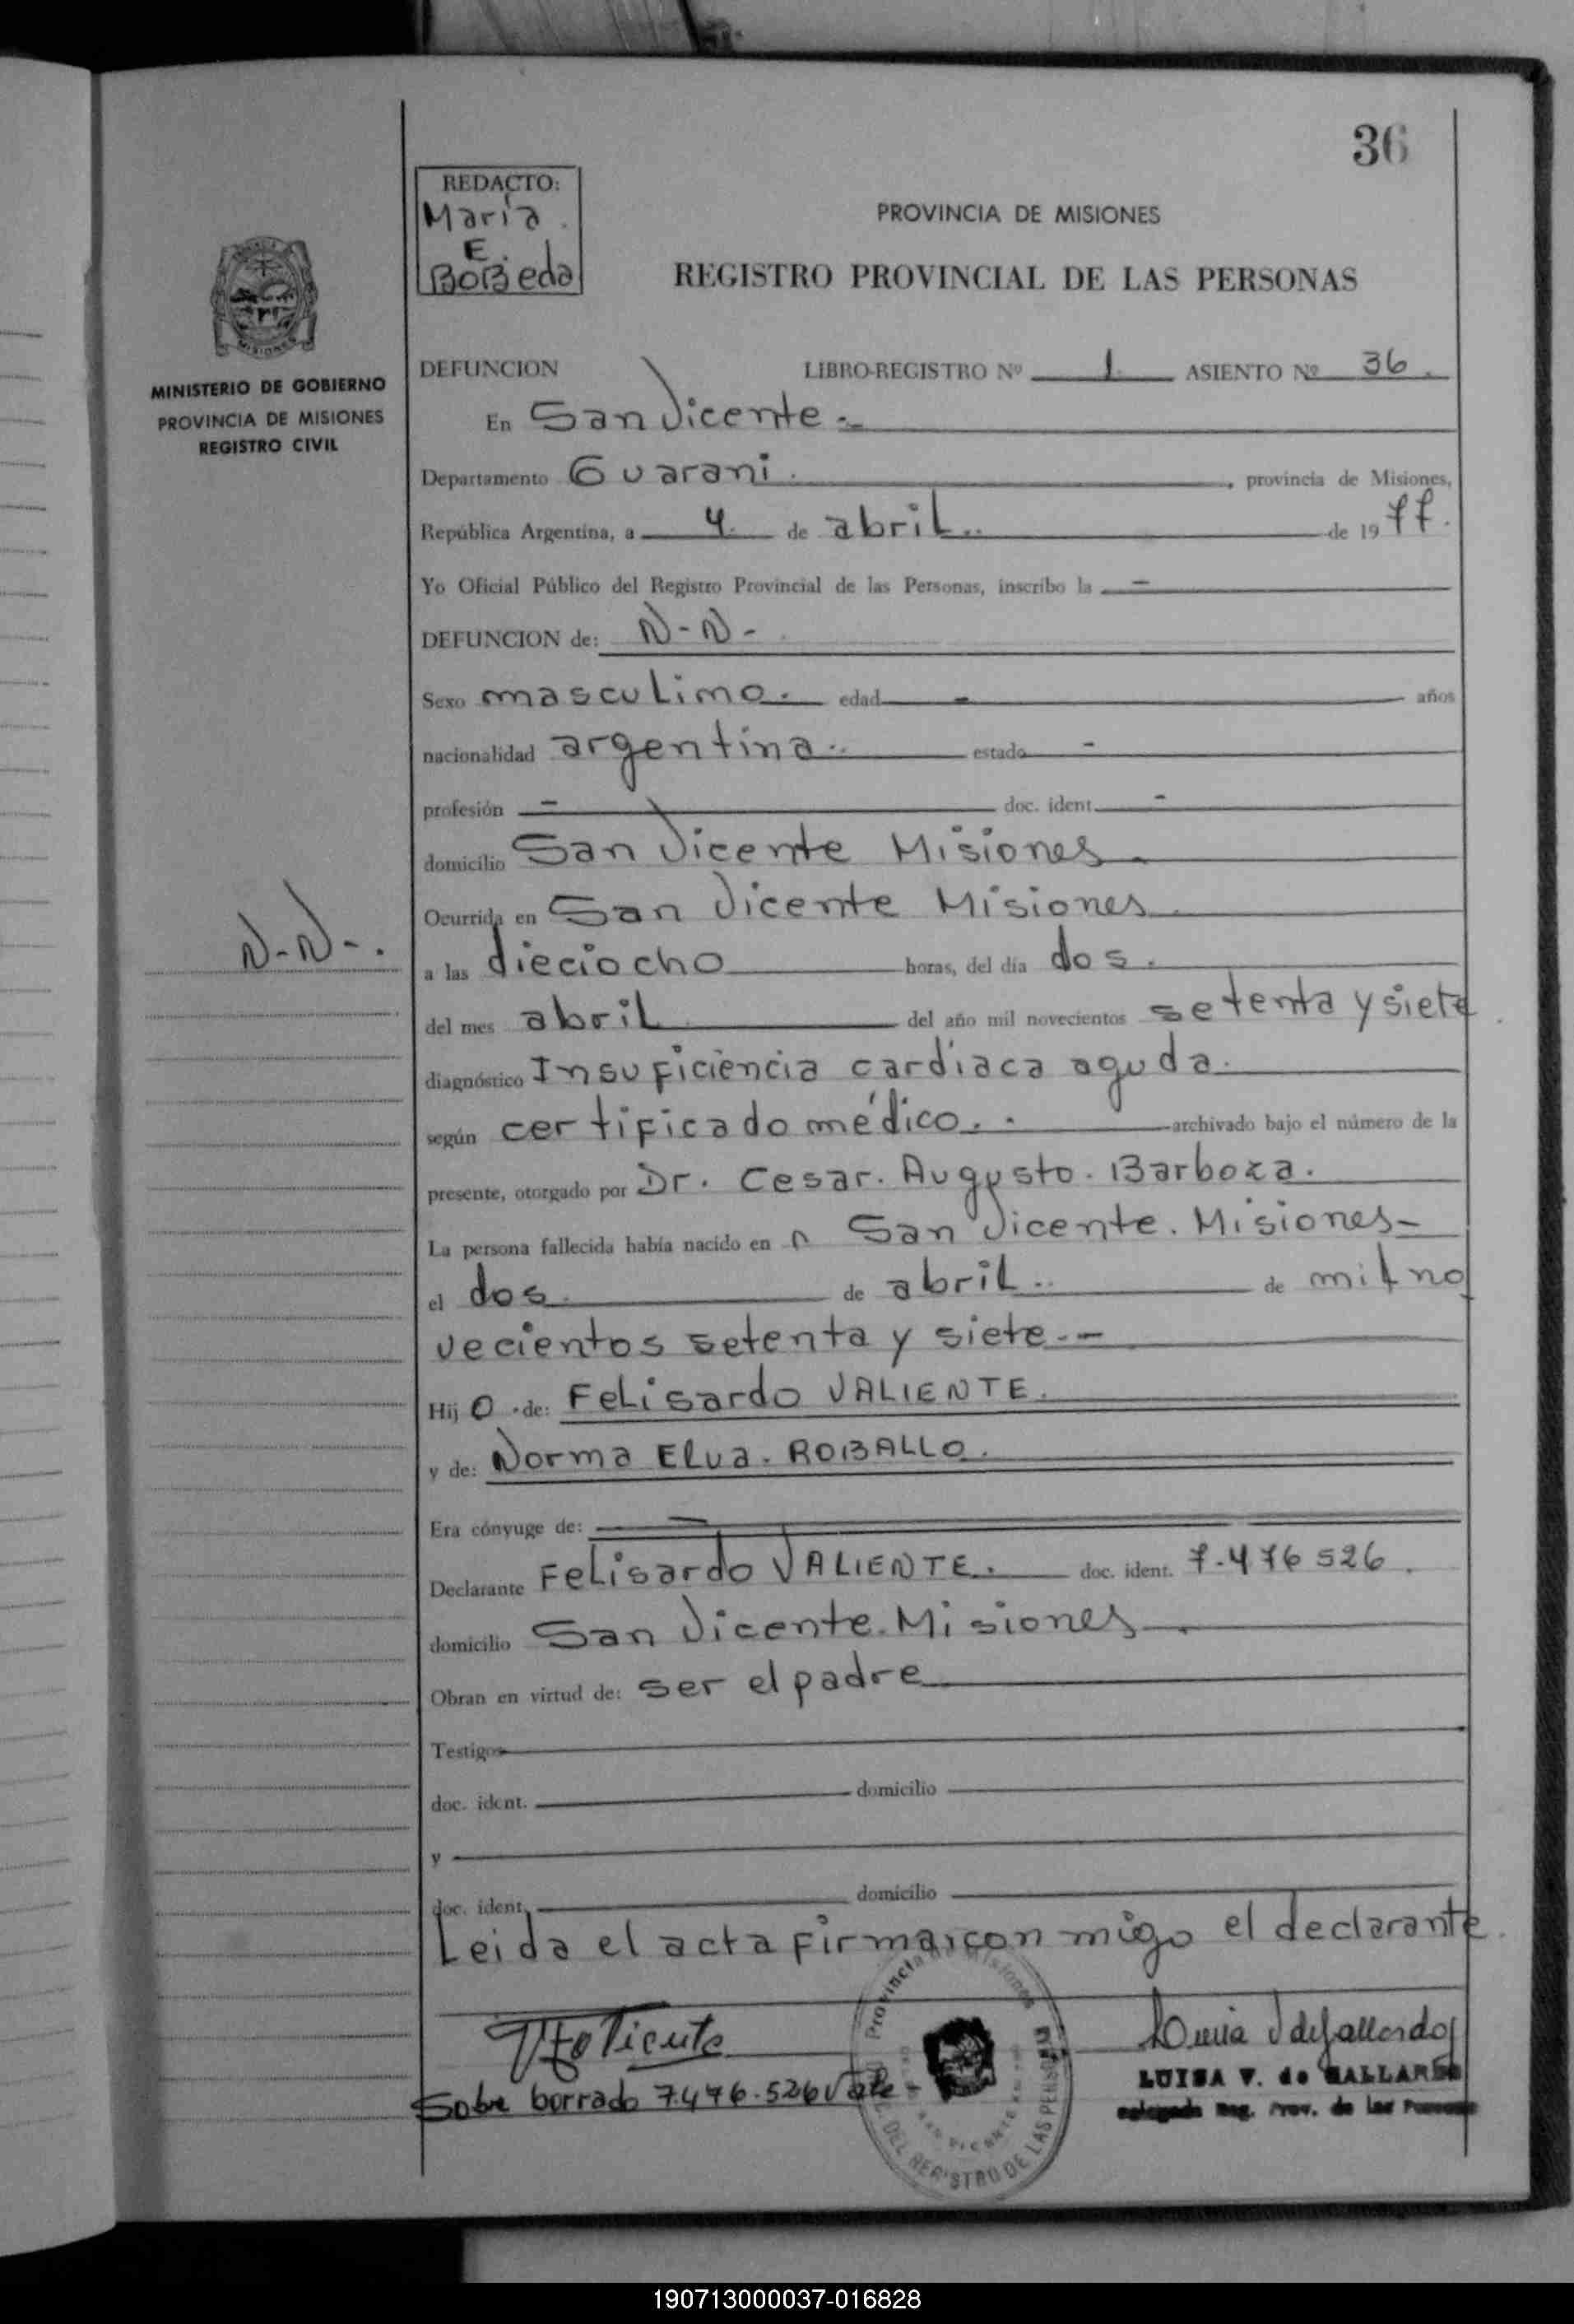 36
REDACTO:
María
E.
BOBeda
PROVINCIA DE MISIONES
REGISTRO PROVINCIAL DE LAS PERSONAS
MISIONES
MINISTERIO DE GOBIERNO
PROVINCIA DE MISIONES
REGISTRO CIVIL
DEFUNCION LIBRO-REGISTRO Nº 1 ASIENTO Nº 36.
En San Vicente.-
Departamento Guarani. , provincia de Misiones,
República Argentina, a 4. de abril.. de 1977.
Yo Oficial Público del Registro Provincial de las Personas, inscribo la -
DEFUNCION de: N-N-
Sexo masculino. edad - años
nacionalidad argentina.. estado -
profesión - doc. ident. -
domicilio San Vicente Misiones.
Ocurrida en San Vicente Misiones.
N-N-.
a las dieciocho horas, del día dos.
del mes abril del año mil novecientos setenta y siete
diagnóstico Insuficiencia cardíaca aguda.
según certificado médico.. archivado bajo el número de la
presente, otorgado por Dr. Cesar. Augusto. Barboza.
La persona fallecida había nacido en San Vicente. Misiones-
el dos. de abril.. de mil no
vecientos setenta y siete.-
Hijo de: Felisardo VALIENTE.
y de: Norma Elva. ROBALLO.
Era cónyuge de: -
Declarante Felisardo VALIENTE. doc. ident. 7.476526.
domicilio San Vicente. Misiones.
Obran en virtud de: ser el padre
Testigos
doc. ident. domicilio
y
doc. ident. domicilio
Leida el acta firma con migo el declarante.
Sobre borrado 7.476.526 Vale-
Provincia de Misiones
DEL REGISTRO DE LAS PERSONAS
LUISA V. de GALLARDO
Delegada Reg. Prov. de las Personas
190713000037-016828